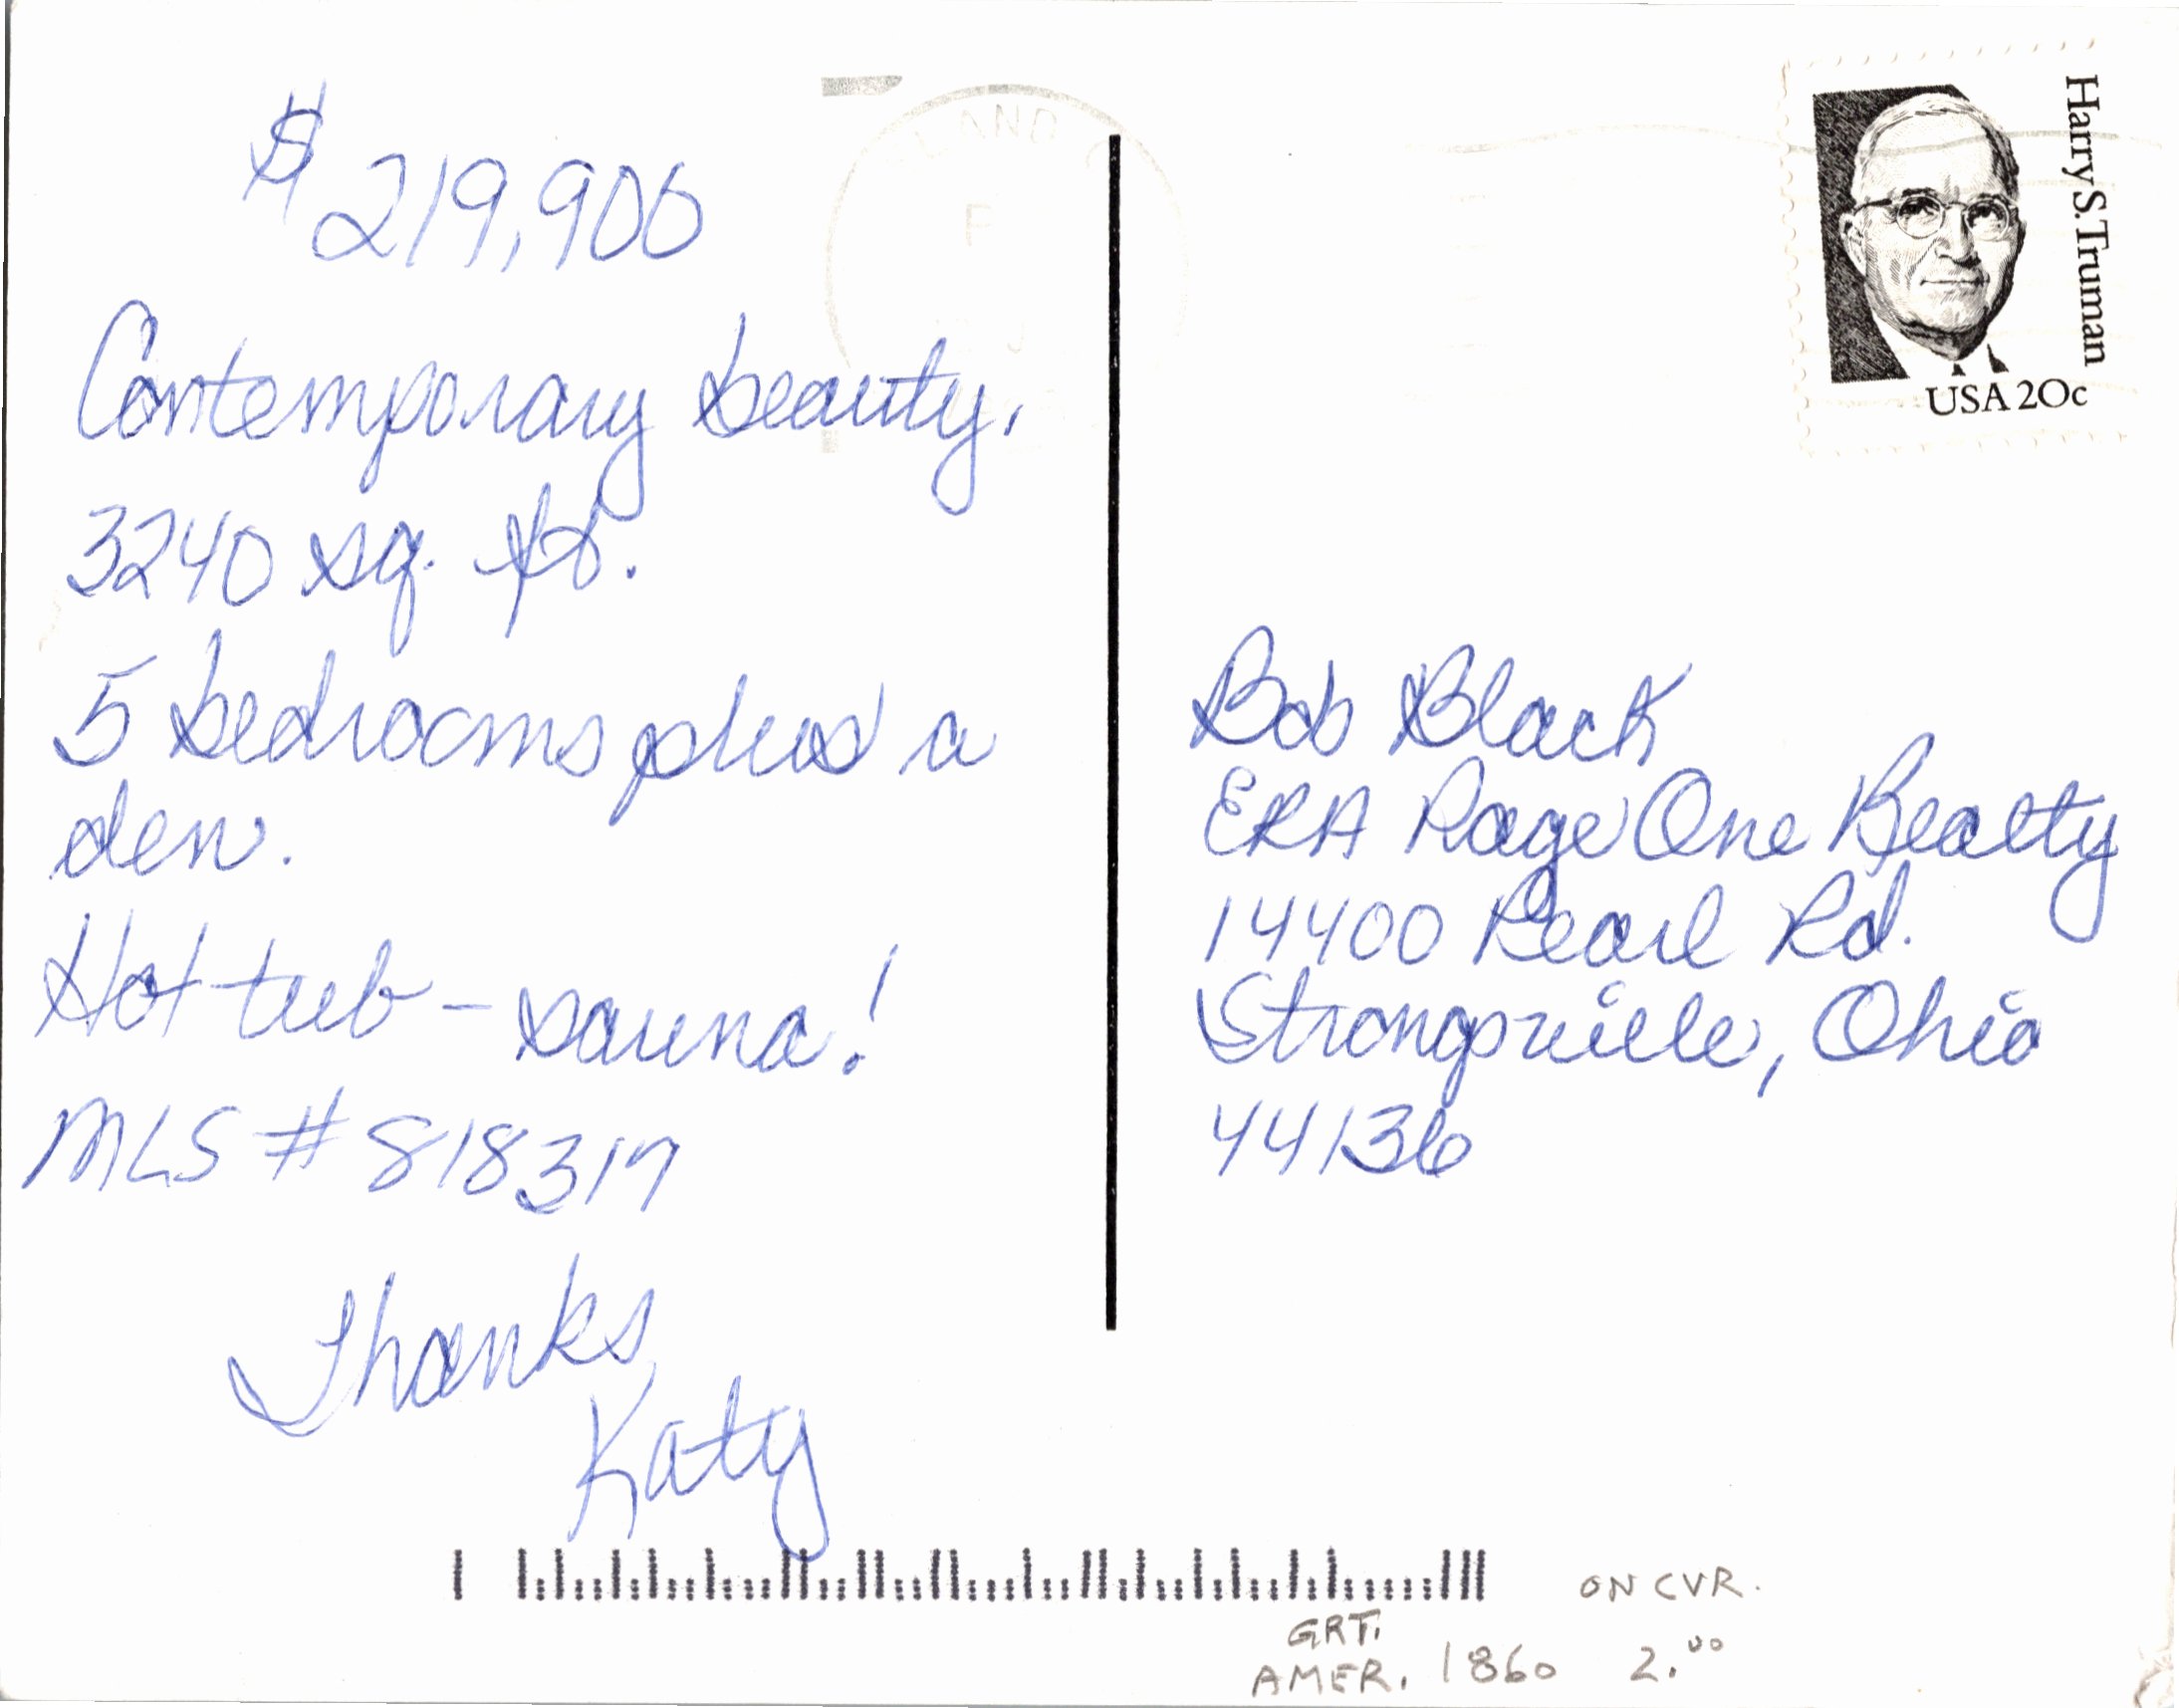 $219,900
Contemporary beauty.
3240 sq. ft.
5 bedrooms plus a
den.
Hot tub - sauna!
MLS # 818317
Thanks
Katy
Harry S. Truman
USA 20c
Bob Black
ERA Page One Realty
14400 Pearl Rd.
Strongsville, Ohio
44136
ON CVR.
GRT.
AMER. 1860 2.00